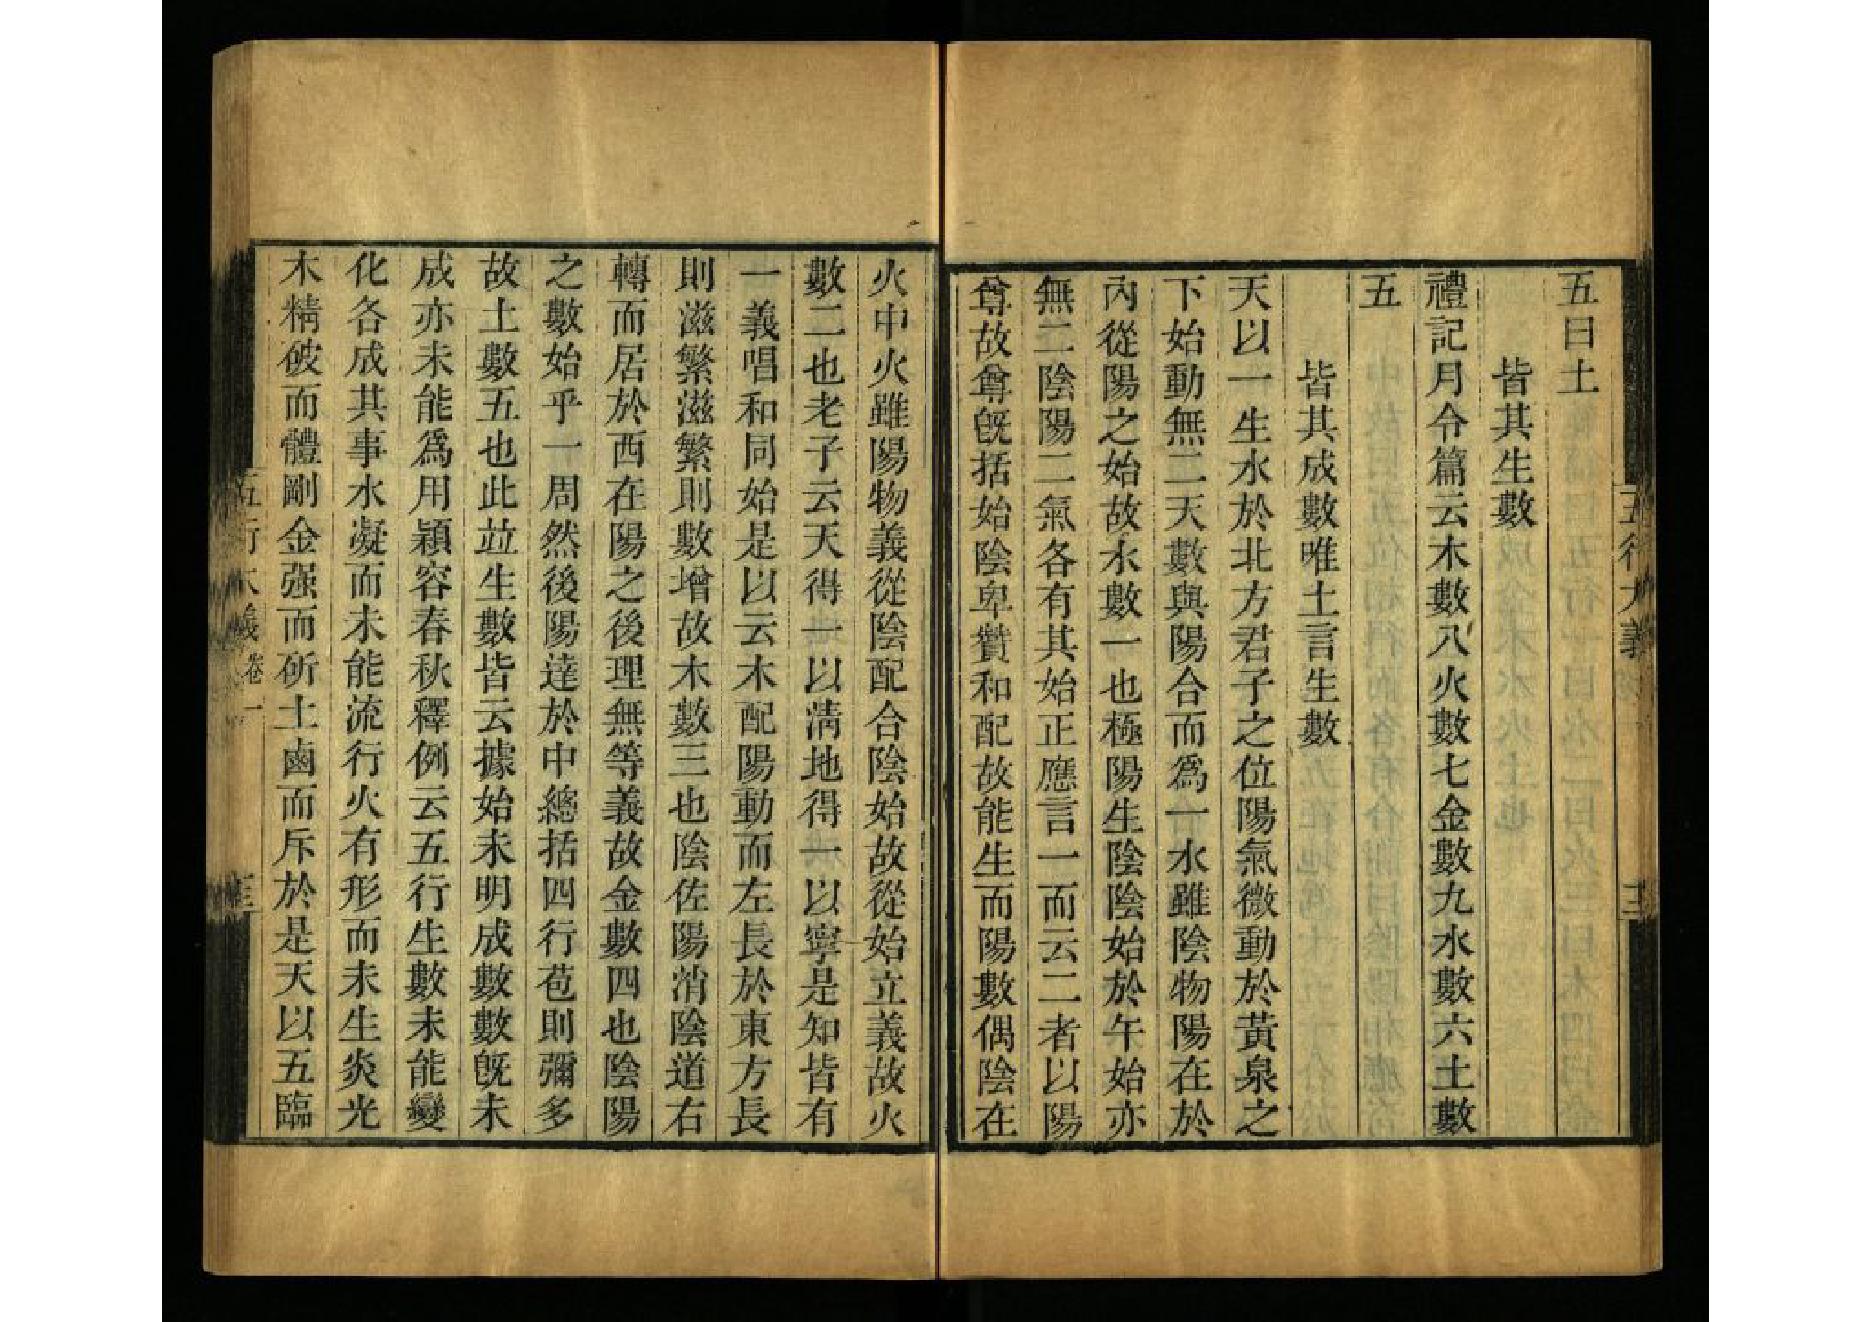 五曰土
皆其生數
禮記月令篇云木數八火數七金數九水數六土數
五
皆其成數唯土言生數
天以一生水於北方君子之位陽氣微動於黃泉之
下始動無二天數與陽合而爲一水雖陰物陽在於
內從陽之始故水數一也極陽生陰陰始於午始亦
無二陰陽二氣各有其始正應言一而云二者以陽
尊故尊旣括始陰卑贊和配故能生而陽數偶陰在
火中火雖陽物義從陰配合陰始故從始立義故火
數二也老子云天得一以淸地得一以寧是知皆有
一義唱和同始是以云木配陽動而左長於東方長
則滋繁滋繁則數增故木數三也陰佐陽消陰道右
轉而居於西在陽之後理無等義故金數四也陰陽
之數始乎一周然後陽達於中總括四行苞則彌多
故土數五也此竝生數皆云據始未明成數數旣未
成亦未能爲用穎容春秋釋例云五行生數未能變
化各成其事水凝而未能流行火有形而未生炎光
木精破而體剛金强而斫土鹵而斥於是天以五臨
五行大義 卷一